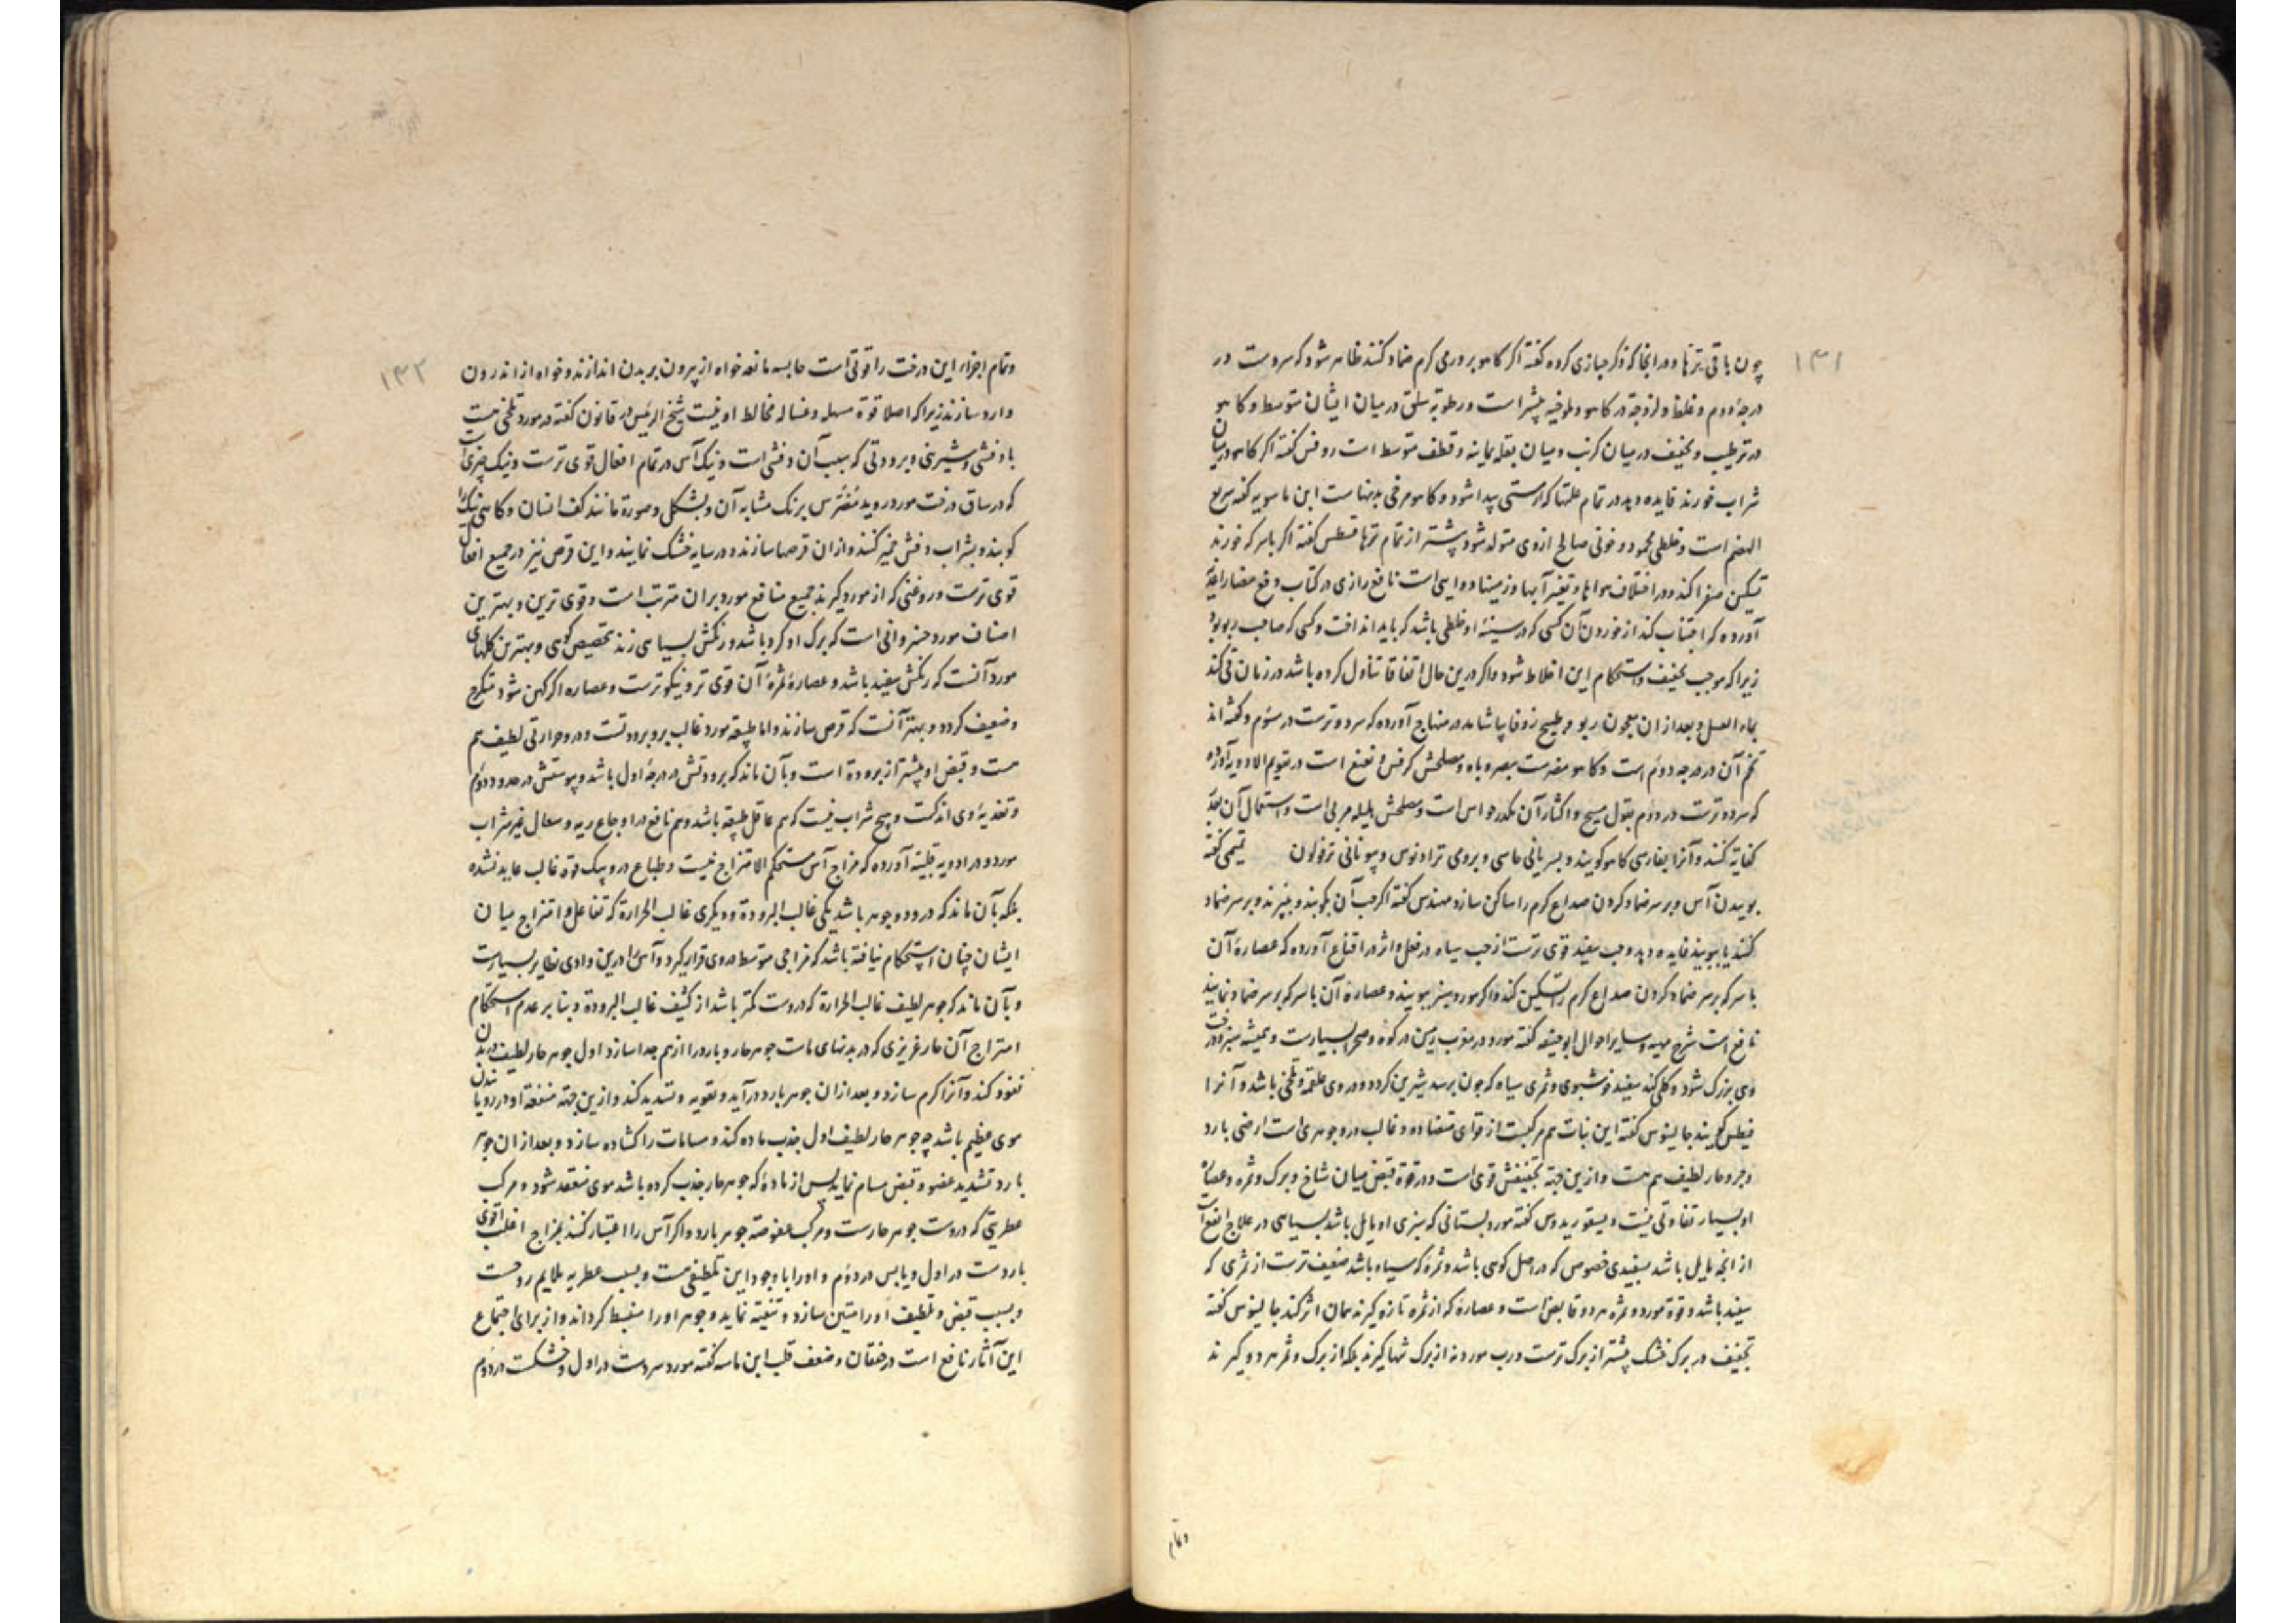 ۱۳۱
چون باقی ترها و در انجا که ذکر خبازی کرده گفته اکر کاهو بر ورمی کرم ضماد کنند ظاهر شود که سردست در
درجه دوم و غلظ و لزوجة در کاهو و ملوخیه بیشتر است و رطوبه سلق در میان ایشان متوسط و کاهو
در ترطیب و تجفیف در میان کرنب و میان بقله یمانیه و قطف متوسط است روفس گفته اکر کاهو در میان
شراب خورند فایده دهد در تمام علتها که از مستی پیدا شود و کاهو مرخی بدنهاست ابن ماسویه گفته سریع
الهضم است و خلطی محمود و خونی صالح ازوی متولد شود بیشتر از تمام ترها قسطس گفته اکر با سرکه خورند
تسکین صفرا کند و در اختلاف هواها و تغیر آبها و زمینها دوایی است نافع رازی در کتاب دفع مضار اغذیه
آورده که اجتناب کند از خوردن آن کسی که در سینهٔ او خلطی باشد که باید انداخت و کسی که صاحب ربو بود
زیرا که موجب تجفیف و استحکام این اخلاط شود و اکر درین حال اتفاقا تناول کرده باشد در زمان قی کند
بماء العسل و بعد از ان معجون ربو و طبیخ زوفا بیاشامد در منهاج آورده که سرد و ترست در سوم و گفته اند
تخم آن در درجه دوم است و کاهو مضرست ببصر و باه و مصلحش کرفس و نعنع است در تقویم الادویه آورده
که سرد و ترست در دوم بقول مسیح و اکثار آن مکدر حواس است و مصلحش هلیله مربی است و استعمال آن بقدر
کفایه کنند و آنرا بفارسی کاهو گویند و بسریانی حاسی و برومی تراونوس و بیونانی ترنولون تمیمی گفته
بوییدن آس و بر سر ضماد کردن صداع کرم را ساکن سازد مهندس گفته اکر حب آن بکوبند و بپزند و بر سر ضماد
کنند یا ببویند فایده دهد و حب سفید قوی ترست از حب سیاه در فعل و اثر در اقناع آورده که عصارهٔ آن
با سرکه بر سر ضماد کردن صداع کرم را تسکین کند و اکر مورد سبز ببویند و عصارهٔ آن با سرکه بر سر ضماد نمایند
نافع است شرح مهیه و سایر احوال ابو حنیفه گفته مورد در مغرب زمین در کوه و صحرا بسیارست و همیشه سبز و درخت
وی بزرک شود و کلی کند سفید خوشبوی و ثمری سیاه که چون برسد شیرین کردد و در وی علقمه و تلخی باشد و آنرا
فیطس گویند جالینوس گفته این نبات هم مرکبست از قوای متضاده و غالب درو جوهری است ارضی بارد
و جزو حار لطیف هم هست و از این جهة تجفیفش قوی است و در قوة قبض میان شاخ و برک و ثمره و عصارهٔ
او بسیار تفاوتی نیست دیسقوریدوس گفته مورد بستانی که سبزی او مایل باشد بسیاهی در علاج انفع است
از انچه مایل باشد بسفیدی خصوص که در اصل کوهی باشد و ثمره که سیاه باشد ضعیف ترست از ثمری که
سفید باشد و قوة مورد و ثمره هر دو قابض است و عصاره که از ثمره تازه کیرند همان اثر کند جالینوس گفته
تجفیف در برک خشک بیشتر از برک ترست و رب مورد نه از برک تنها کیرند بلکه از برک و ثمر هر دو کیرند
وتمام
۱۳۲
وتمام اجزاء این درخت را قوتی است حابسه مانعه خواه از بیرون بر بدن اندازند و خواه از اندرون
وارد سازند زیرا که اصلا قوة مسهله و غساله مخالط او نیست شیخ الرئیس در قانون گفته در مورد تلخی هست
با عفصی و شیرینی و برودتی که بسبب آن عفصی است و بنک آس در تمام افعال قوی ترست و بنک چیزی است
که در ساق درخت مورد روید مضرس برنک مشابه آن و بشکل و صورة مانند کف انسان و کاهی بنک را
کوبند و بشراب عفص خمیر کنند و از ان قرصها سازند و در سایه خشک نمایند و این قرص نیز در جمیع افعال
قوی ترست و روغنی که از مورد کیرند جمیع منافع مورد بران مترتب است و قوی ترین و بهترین
اصناف مورد خسروانی است که برک او کرد باشد و رنکش بسیاهی زند بتخصیص کوهی و بهترین کلهای
مورد آنست که رنکش سفید باشد و عصارهٔ ثمرهٔ آن قوی تر و نیکوترست و عصاره اکر کهن شود متکرج
و ضعیف کردد و بهتر آنست که قرص سازند و اما طبیعة مورد غالب برو برودتست و درو حرارتی لطیف هم
هست و قبض او بیشتر از برودة است و بآن ماند که برودتش در درجهٔ اول باشد و یبوستش در حدود دوم
و تغذیهٔ وی اندکست و هیچ شراب نیست که هم عاقل طبیعه باشد و هم نافع در اوجاع ریه و سعال غیر شراب
مورد و در ادویه قلبیه آورده که مزاج آس مستحکم الامتزاج نیست و طباع درو بیک قوة غالب عاید نشده
بلکه بآن ماند که درو دو جوهر باشد یکی غالب البرودة و دیکری غالب الحرارة که تفاعل و امتزاج میان
ایشان چنان استحکام نیافته باشد که مزاجی متوسط در وی قرار کیرد و آس را درین وادی نظایر بسیارست
و بآن ماند که جوهر لطیف غالب الحرارة که دروست کمتر باشد از کثیف غالب البرودة و بنا بر عدم استحکام
امتزاج آن حار غریزی که در بدنهای ماست جوهر حار و بارد را از هم جدا سازد و اول جوهر حار لطیف در بدن
نفوذ کند و آنرا کرم سازد و بعد از ان جوهر بارد در آید و تقویه و تشدید کند و ازین جهة منفعة او در رویانیدن
موی عظیم باشد چه جوهر حار لطیف اول جذب ماده کند و مسامات را کشاده سازد و بعد از ان جوهر
بارد تشدید عضو و قبض مسام نماید پس از مادهٔ که جوهر حار جذب کرده باشد موی منعقد شود و مرکب
عطریتی که دروست جوهر حارست و مرکب عفوصة جوهر بارد و اکر آس را اعتبار کنند بمزاج اغلب اقوی
باردست در اول و یابس در دوم و او را با وجود این تلطیفی هست و بسبب عطریه ملایم روحست
و بسبب قبض و تلطیف او را متین سازد و تنقیه نماید و جوهر او را منبسط کرداند و از برای اجتماع
این آثار نافع است در خفقان و ضعف قلب ابن ماسه گفته مورد سردست در اول و خشکست در دوم